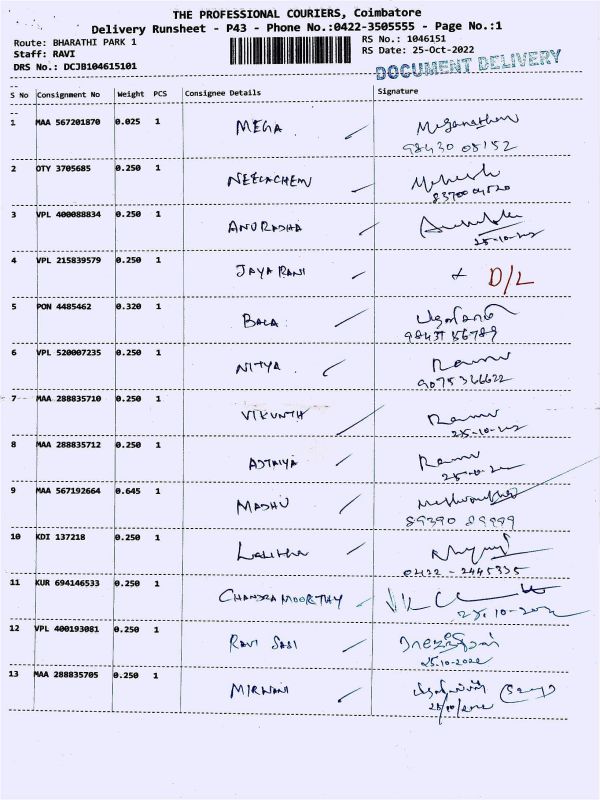 THE PROFESSIONAL COURIERS, Coimbatore
Delivery Runsheet - P43 - Phone No.:0422-3505555 - Page No.:1
Route: BHARATHI PARK 1
RS No.: 1046151
Staff: RAVI
RS Date: 25-Oct-2022
DRS No.: DCJB104615101
DOCUMENT DELIVERY
S No Consignment No Weight PCS Consignee Details Signature
1 MAA 567201870 0.025 1 MEGA
98430 08152
2 OTY 3705685 0.250 1 NEELACHEM Mahesh
3 VPL 400088834 0.250 1 ANURADHA
25-10-202
4 VPL 215839579 0.250 1 JAYARANI D/L
5 PON 4485462 0.320 1 BALA
98437 56789
6 VPL 520007235 0.250 1 NITYA
9075366622
7 MAA 288835710 0.250 1 VIKUNTH
25-10-202
8 MAA 288835712 0.250 1
25-10-202
9 MAA 567192664 0.645 1 MADHU
89390 89999
10 KDI 137218 0.250 1 Lalitha
0422 - 2445335
11 KUR 694146533 0.250 1 CHANDRA MOORTHY
25.10-202
12 VPL 400193081 0.250 1 RAVI SASI
25.10-2022
13 MAA 288835705 0.250 1
25/10/202